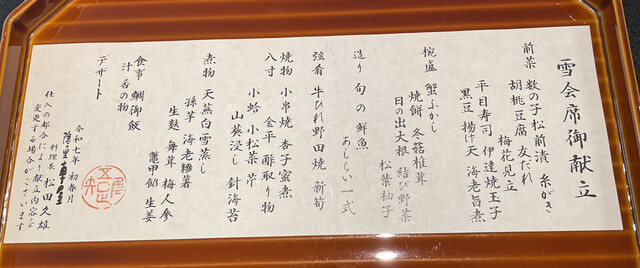 雪会席御献立
前菜 数の子松前漬 糸がき
胡桃豆腐 友だれ
梅花見立
平目寿司 伊達焼玉子
黒豆 揚げ天 海老旨煮
椀盛 蟹ふかし
焼餅 冬菇椎茸
日の出大根 結び野菜
松葉柚子
造り 旬の鮮魚
あしらい一式
強肴 牛ひれ野田焼 新筍
焼物 小串焼 杏子蜜煮
八寸 金平 酢取り物
小蛤 小松菜 芹
山葵浸し 針海苔
煮物 天蕪白雪蒸し
孫芋 海老糝薯
生麩 舞茸 梅人参
鼈甲餡 生姜
食事 鯛御飯
汁 香の物
デザート
令和七年 初春月
料理長 松田久雄
仕入の都合により献立内容を
変更する場合がございます